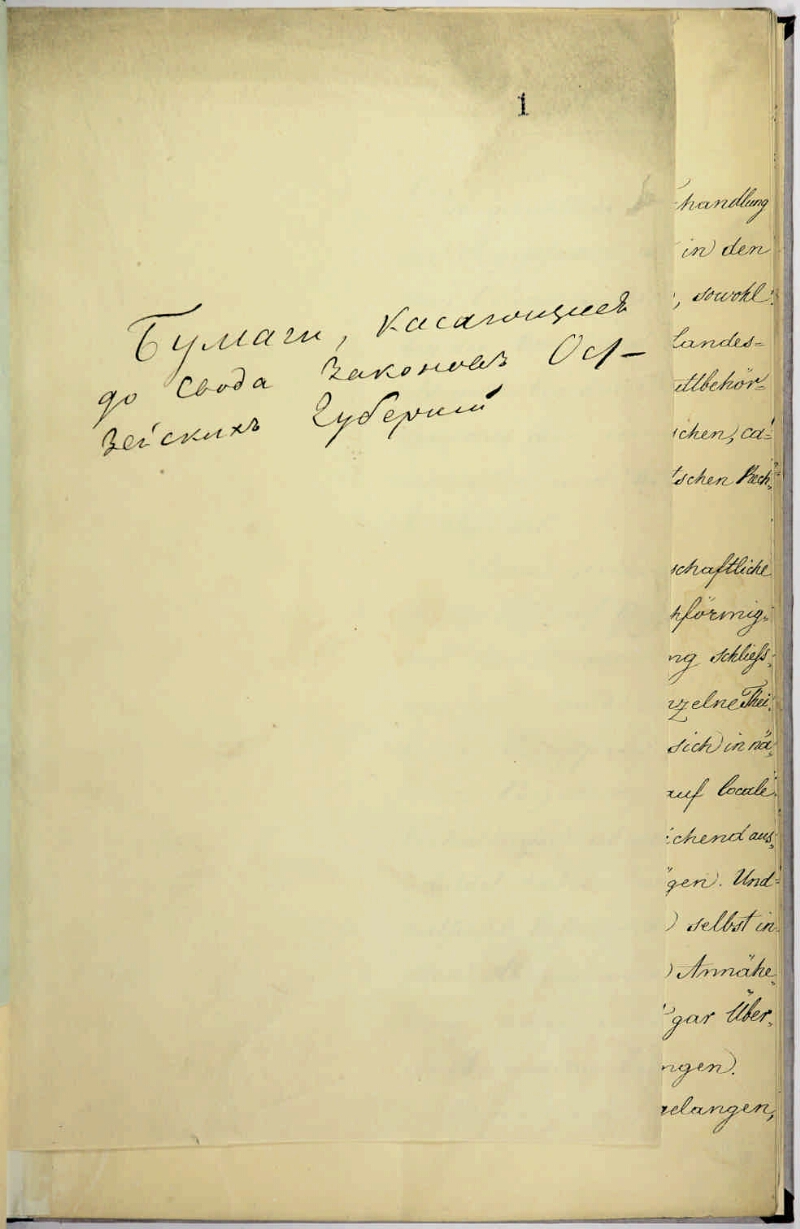 1
Бумаги, касающиеся
до Свода Законовъ Ост-
зейскихъ Губерний
handlung
in den
, sowohl
landes-
ttbehör-
schen, ca-
tschen Rech-
schaftliche
hförmig-
ng schliess-
nzelne Thei-
sich in nä-
auf locale
chend aus
gen. Und
selbst in
Annähe-
gar Über-
ngen.
gelangen,